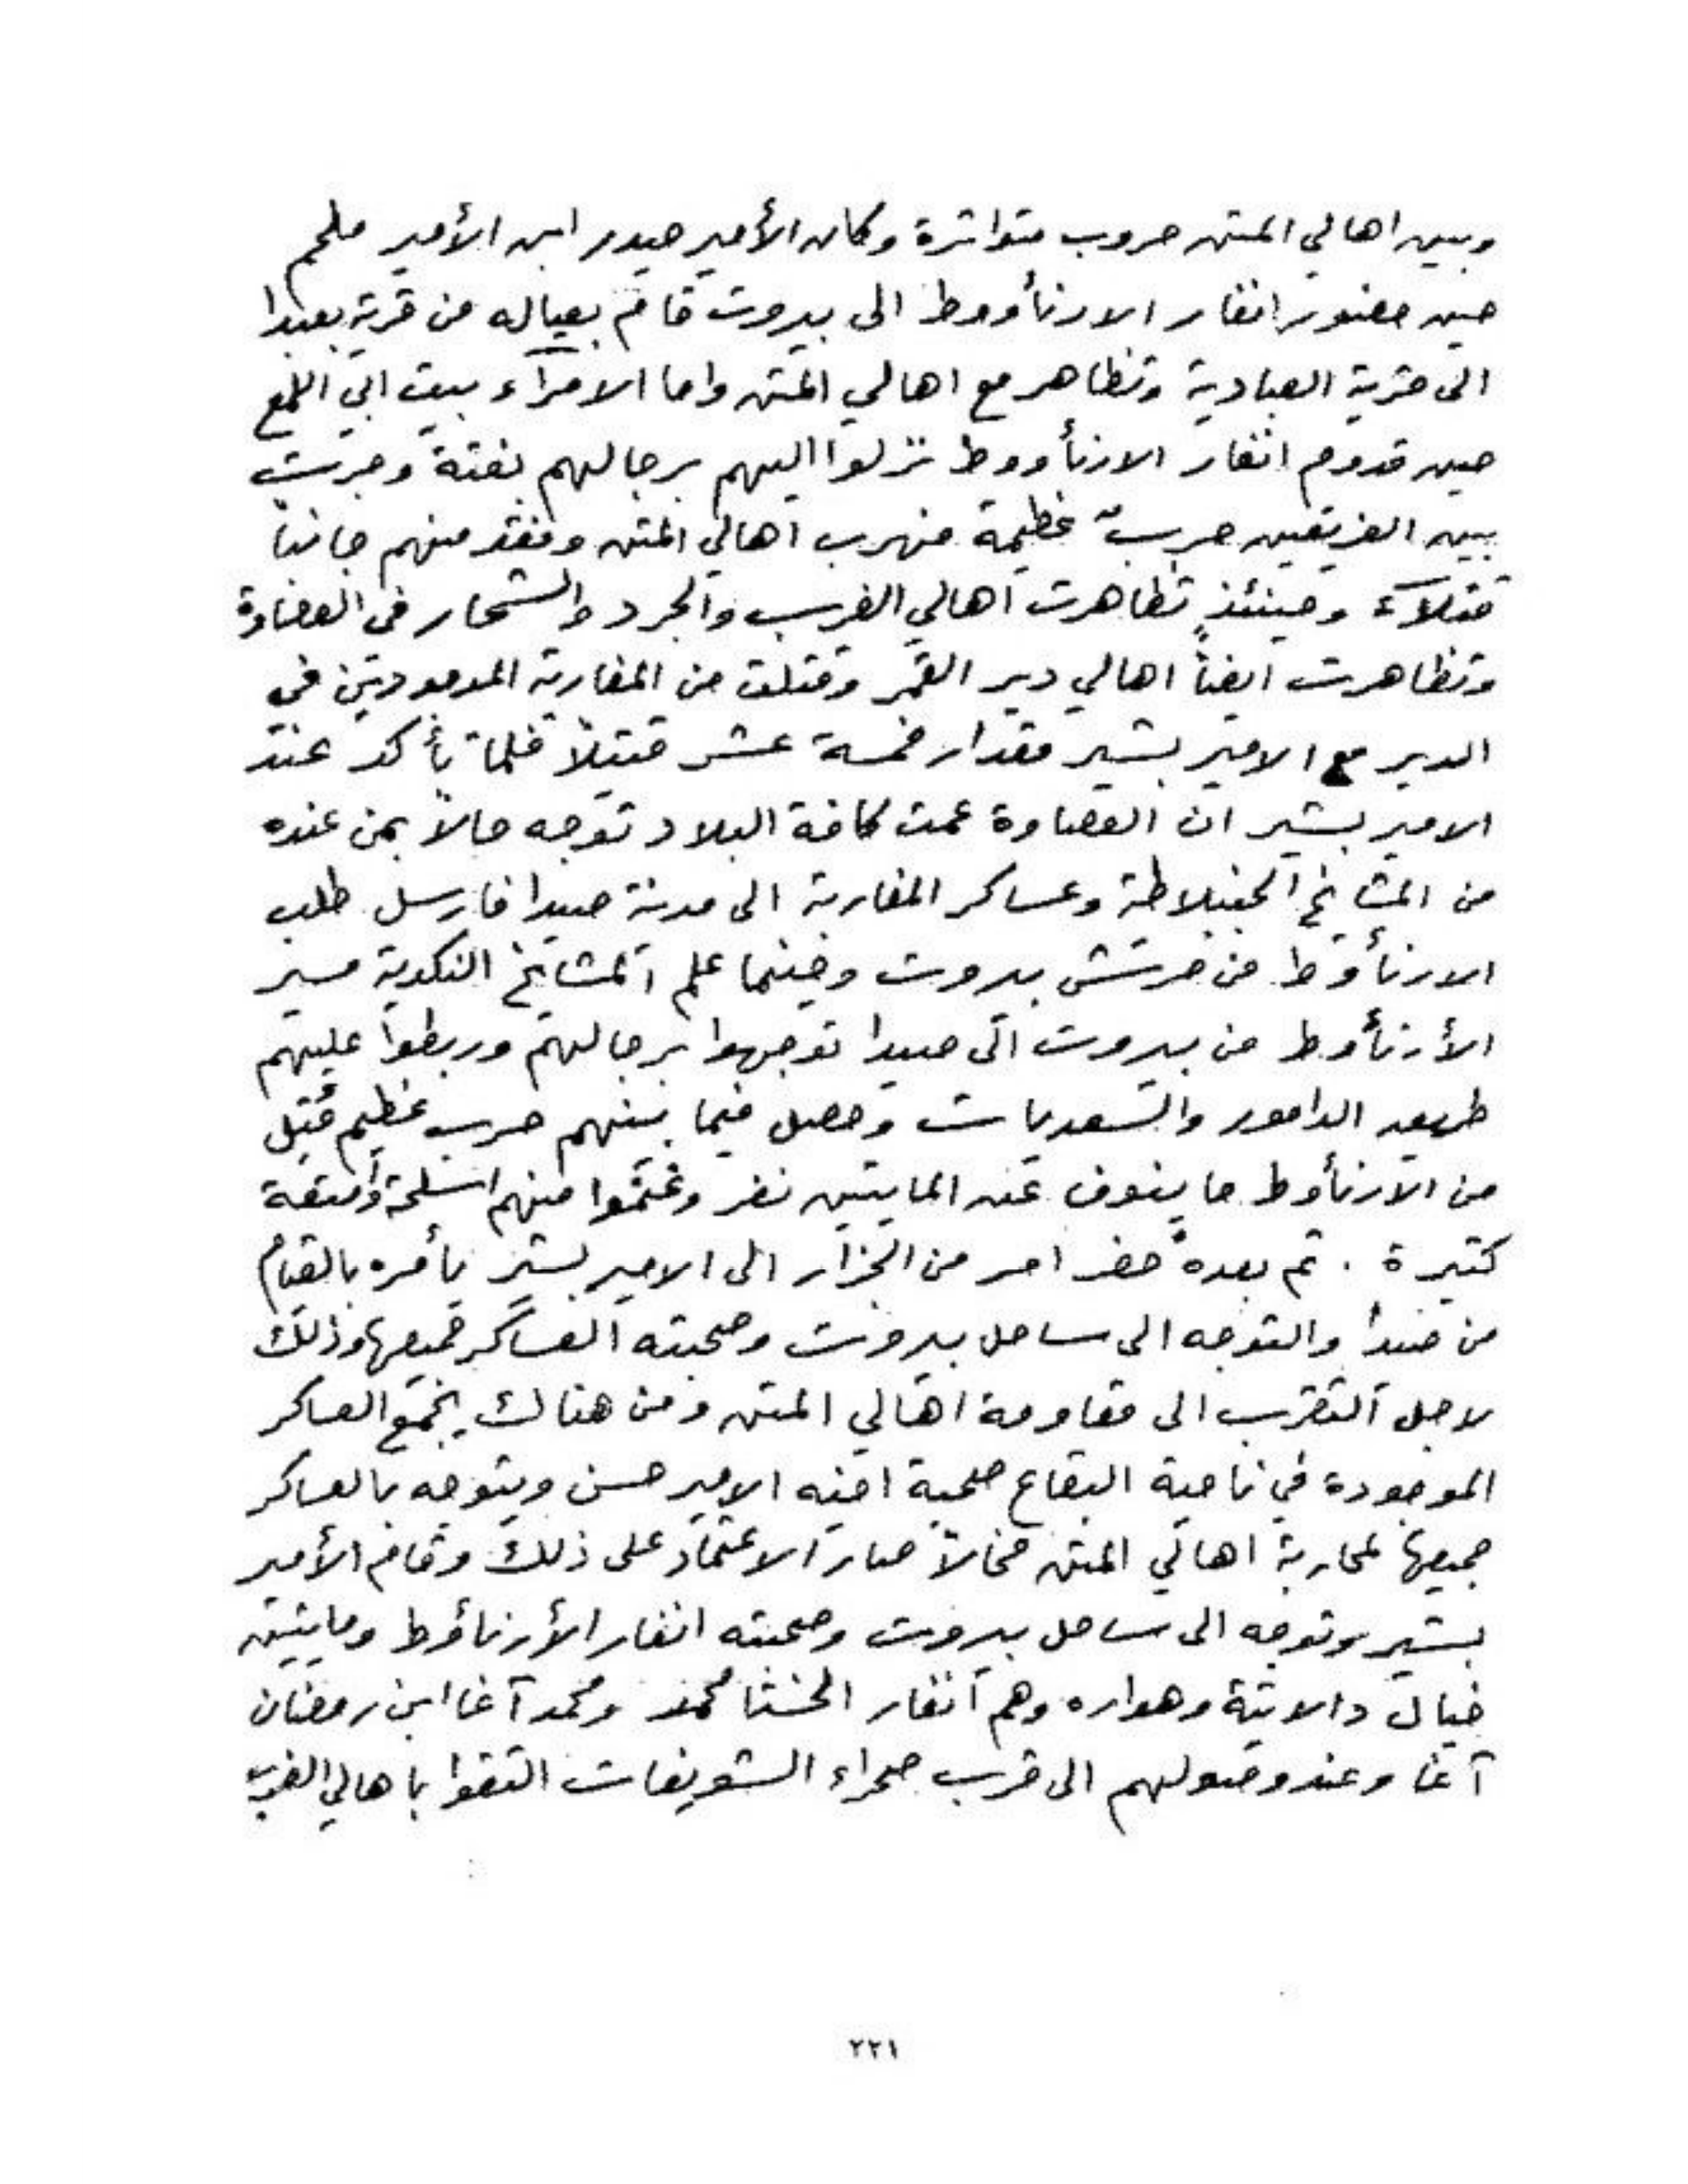 وبين اهالي المتن حروب متواترة وكان الأمير حيدر ابن الأمير ملحم
حين حضور انفار الارنأووط الى بيروت قام بعياله من قرية بعبدا
الى قرية العبادية وتظاهر مع اهالي المتن واما الامرآء بيت ابي اللمع
حين قدوم انفار الارنأووط نزلوا اليهم برجالهم بغتة وجرت
بين الفريقين حربٌ عظيمة فهرب اهالي المتن وفقد منهم جانباً
قتلآء وحينئذٍ تظاهرت اهالي الغرب والجرد والشحار في العصاوة
وتظاهرت ايضاً اهالي دير القمر وقتلت من المغاربة الموجودين في
الدير مع الامير بشير مقدار خمسة عشر قتيلاً فلما تأكد عند
الامير بشير ان العصاوة عمت كافة البلاد توجه حالاً بمن عنده
من المشايخ الجنبلاطية وعساكر المغاربة الى مدنة صيدا فارسل طلب
الارنأوط من حرش بيروت وحينما علم المشايخ النكدية مسير
الأرنأوط من بيروت الى صيدا توجهوا برجالهم وربطوا عليهم
طريق الدامور والسعديات وحصل فيما بينهم حرب عظيم قُتِل
من الارنأوط ما ينوف عن المايتين نفر وغنموا منهم اسلحة وأمتعة
كتيرة . تم بعدهُ حضر امر من الجزار الى الامير بشير يأمره بالقيام
من صيدا والتوجه الى ساحل بيروت وصحبته العساكر جميعها وذلك
لاجل التقرب الى مقاومة اهالي المتن ومن هنالك يجمع العساكر
الموجودة في ناحية البقاع صحبة اخيه الامير حسن ويتوجه بالعساكر
جميعها لمحاربة اهالي المتن فحالاً صار الاعتماد على ذلك وقام الأمير
بشير وتوجه الى ساحل بيروت وصحبته انفار الأرنأوط ومايتين
خيال دالاتية وهواره وهم انفار محمد ومحمد آغا ابن رمضان
آغا وعند وصولهم الى قرب صحراء الشويفات التقوا باهالي الغرب
٢٢١